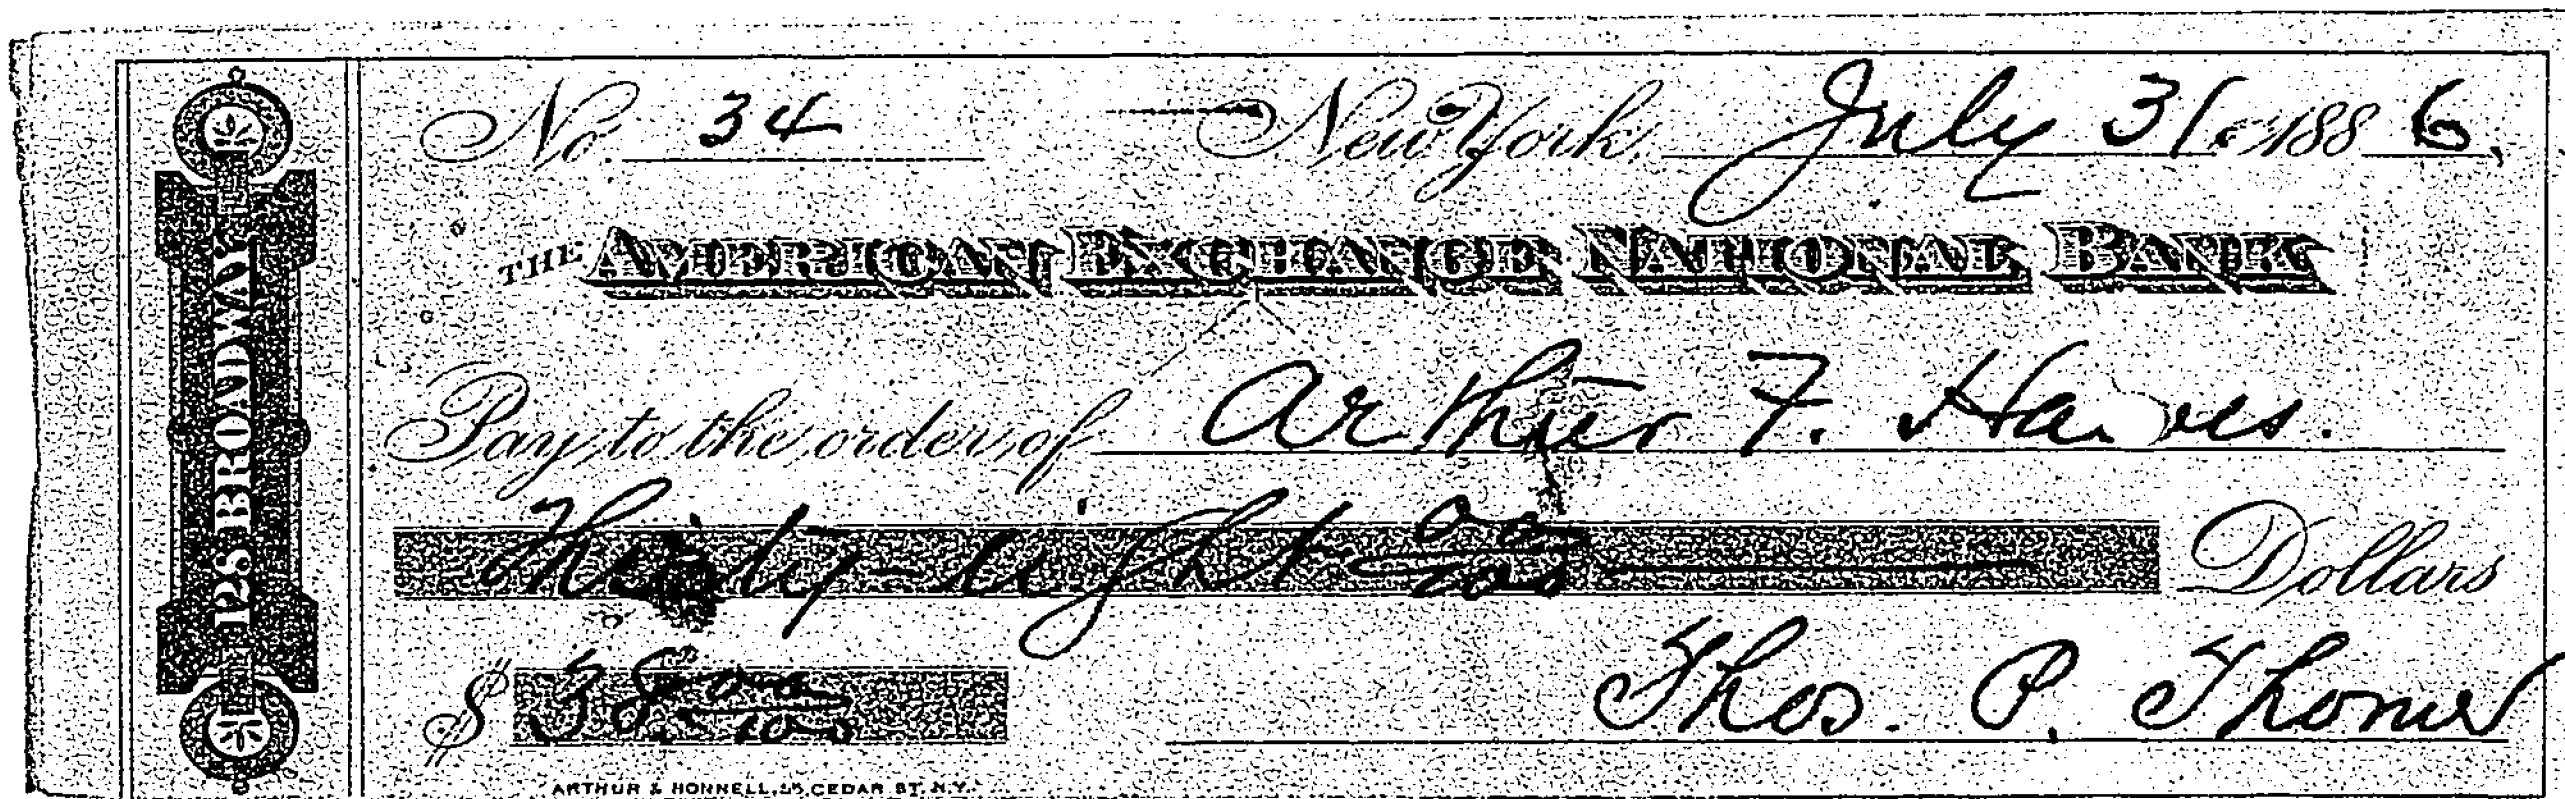 128 BROADWAY
No. 34 New York, July 31 1886.
THE AMERICAN EXCHANGE NATIONAL BANK
Pay to the order of Arthur F. 
Thirty-eight 00/100 Dollars
$ 38 00/100 Thos. P.
ARTHUR & BONNELL, CEDAR ST. N.Y.